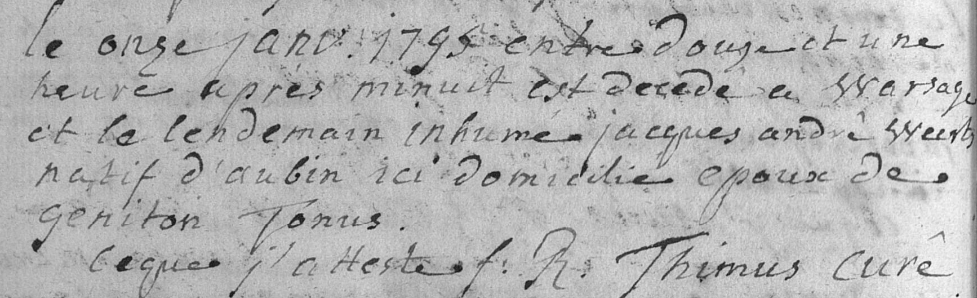 le onze janv. 1795 entre douze et une
heure après minuit est decedé a Warsage
et le lendemain inhumé jacques andré Weerts
natif d'aubin ici domicilié epoux de
geniton Tonus.
ceque j'atteste f. R. Thimus Curé